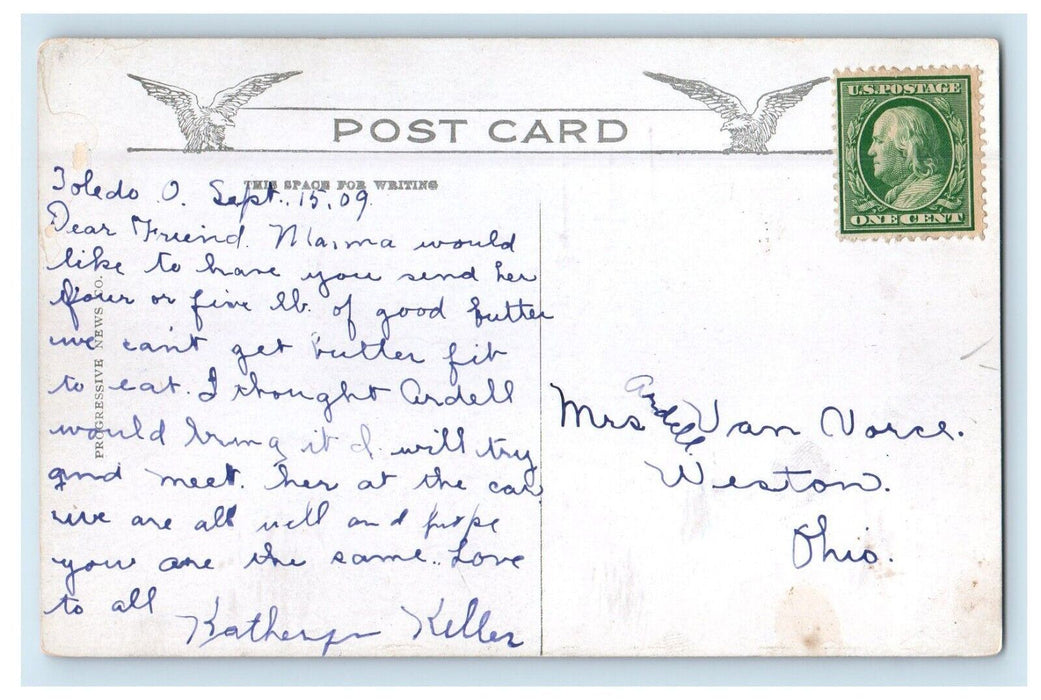 POST CARD
U.S. POSTAGE
ONE CENT
THIS SPACE FOR WRITING
PROGRESSIVE NEWS CO.
Toledo O. Sept. 15, 09.
Dear Friend. Mama would
like to have you send her
four or five lb. of good butter
we can't get butter fit
to eat. I thought Ardell
would bring it I will try
and meet. her at the car
we are all well and hope
you are the same. Love
to all
Katheryn Keller
Mrs Ardell Van Vorce.
Weston.
Ohio.